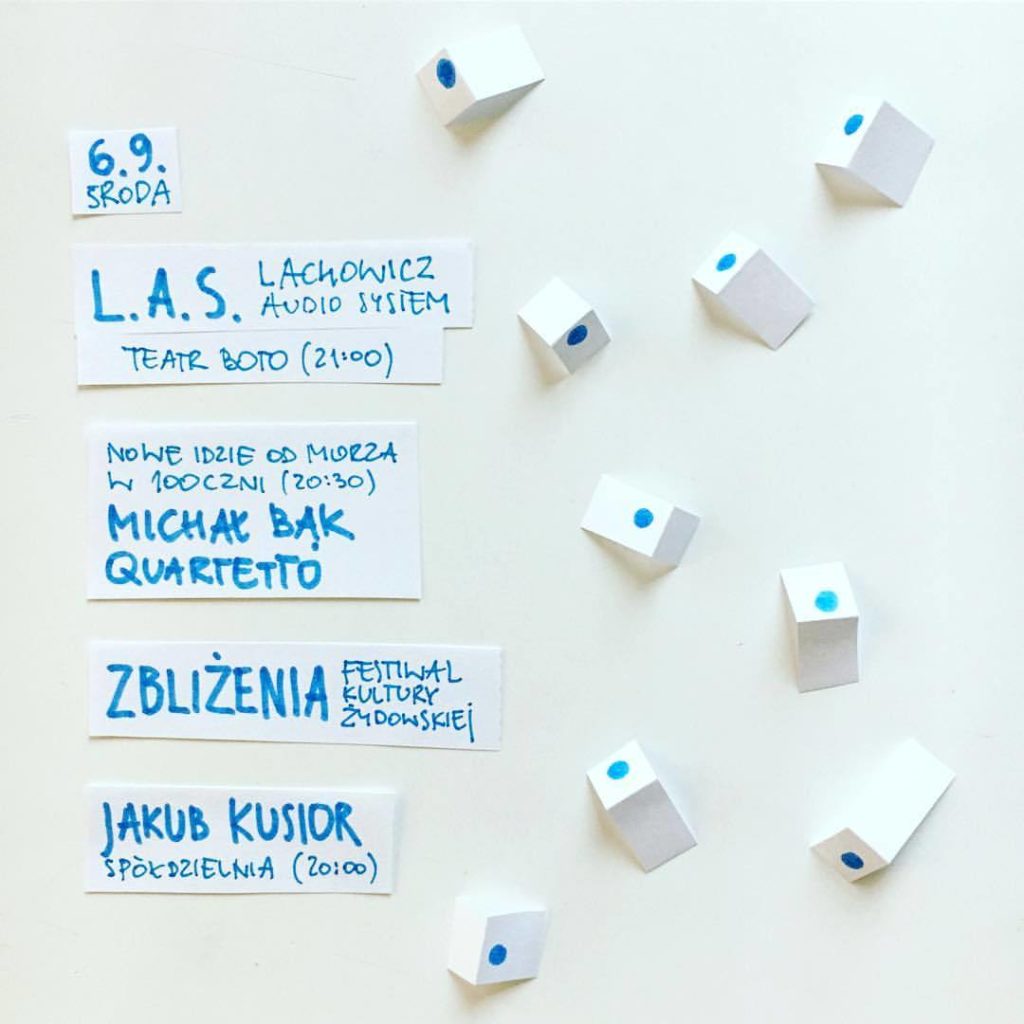 6.9.
ŚRODA
L.A.S. LACHOWICZ
AUDIO SYSTEM
TEATR BOTO (21:00)
NOWE IDZIE OD MORZA
W 100CZNI (20:30)
MICHAŁ BĄK
QUARTETTO
ZBLIŻENIA FESTIWAL
KULTURY
ŻYDOWSKIEJ
JAKUB KUSIOR
SPÓŁDZIELNIA (20:00)